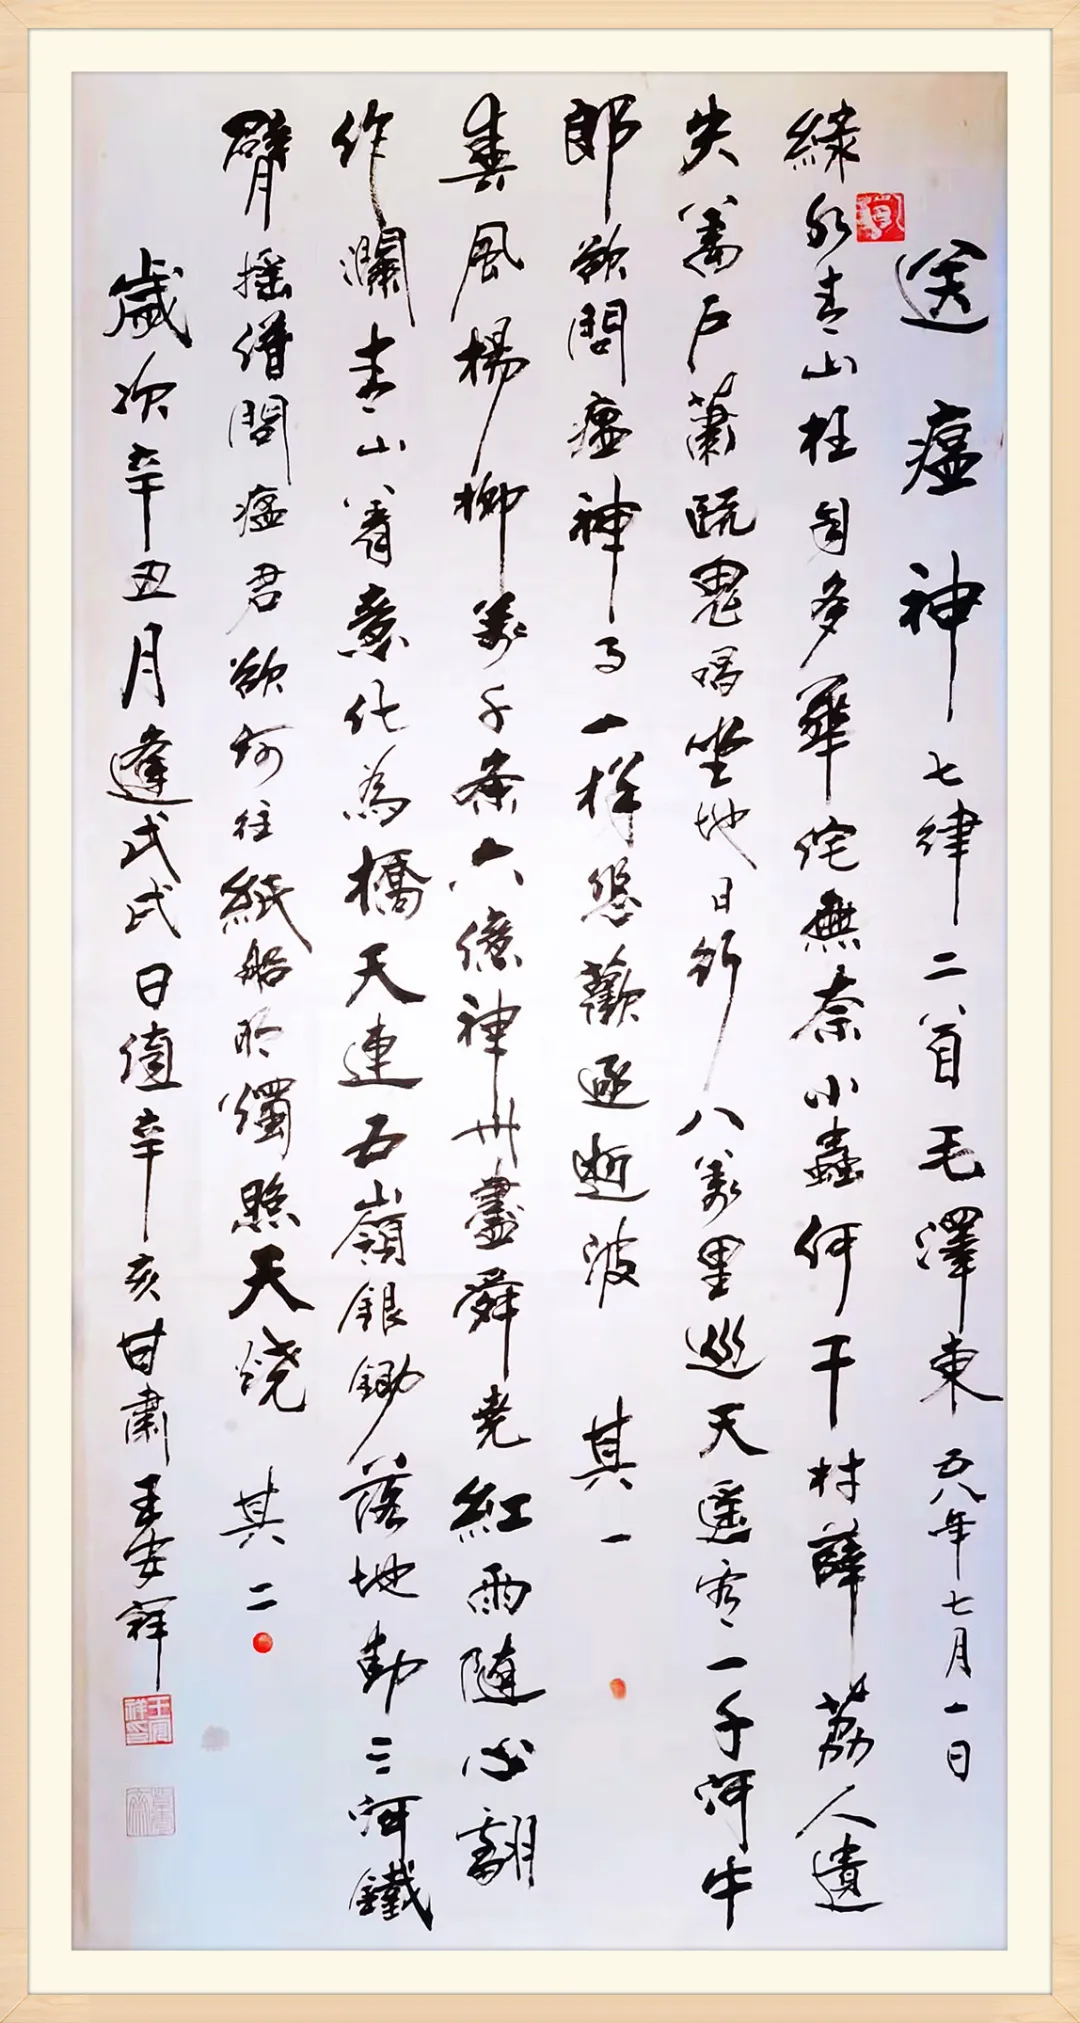 送瘟神 七律二首 毛澤東 五八年七月一日
綠水青山枉自多華佗無奈小蟲何千村薜荔人遺
矢萬户蕭疏鬼唱坐地日行八萬里巡天遥看一千河牛
郎欲問瘟神事一样悲歡逐逝波 其一
春風楊柳萬千条六億神州盡舜尧紅雨随心翻
作瀾青山着意化為橋天連五嶺銀鋤落地動三河鐵
臂摇借問瘟君欲何往紙船明燭照天燒 其二
歲次辛丑月逢戊戌日值辛亥甘肅王安祥